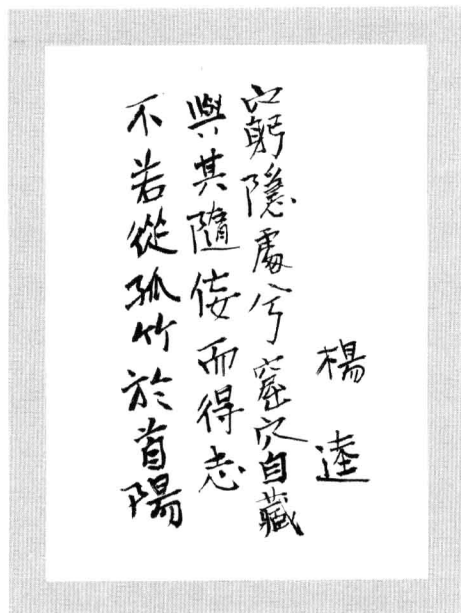 楊逵
窮隱處兮窟穴自藏
與其隨佞而得志
不若從孤竹於首陽